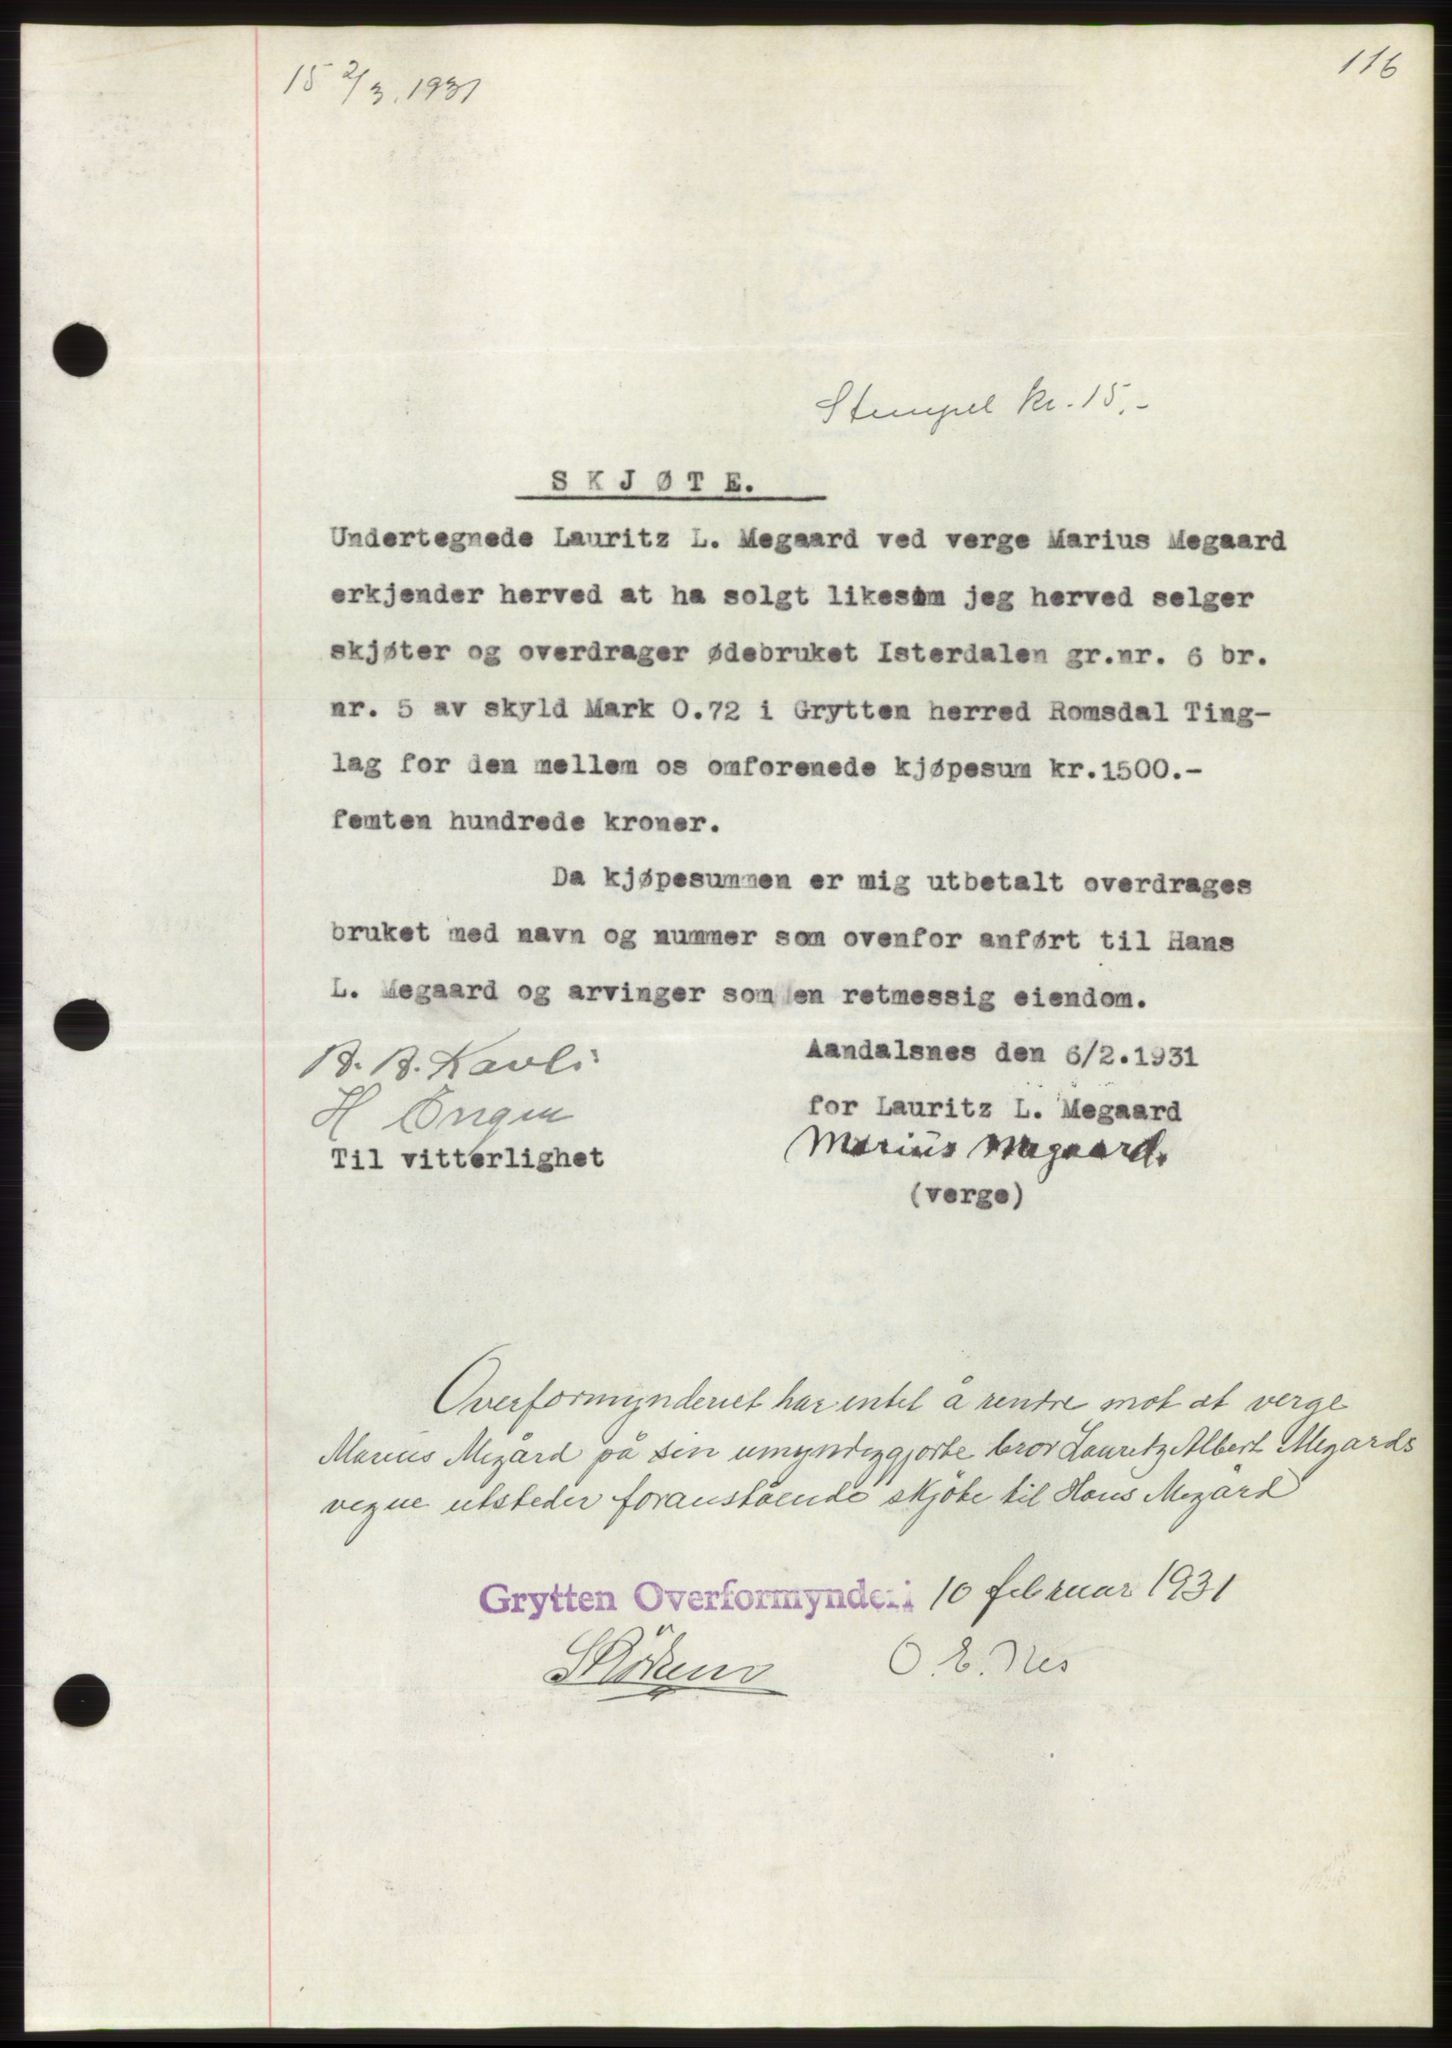 116
15 2/3. 1931
Stempel kr. 15.-
SKJØTE.
Undertegnede Lauritz L. Megaard ved verge Marius Megaard
erkjender herved at ha solgt likesom jeg herved selger
skjøter og overdrager ødebruket Isterdalen gr.nr. 6 br.
nr. 5 av skyld Mark 0.72 i Grytten herred Romsdal Ting-
lag for den mellem os omforenede kjøpesum kr.1500.-
femten hundrede kroner.
Da kjøpesummen er mig utbetalt overdrages
bruket med navn og nummer som ovenfor anført til Hans
L. Megaard og arvinger som en retmessig eiendom.
Aandalsnes den 6/2.1931
B. B. Kavli
for Lauritz L. Megaard
H
Marius Megaard.
Til vitterlighet
(verge)
Overformynderiet har intet å
mot at verge
Marius Megård på sin umyndiggjorte bror Lauritz Albert Megårds
vegne utsteder foranstående skjöte til Hans Megård
Grytten Overformynderi 10 februar 1931
O. E. Nes